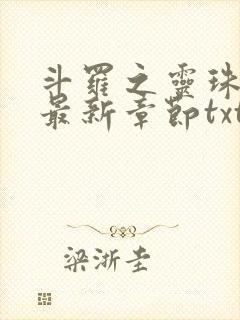 斗羅之靈珠
最新章節txt
梁浙圭